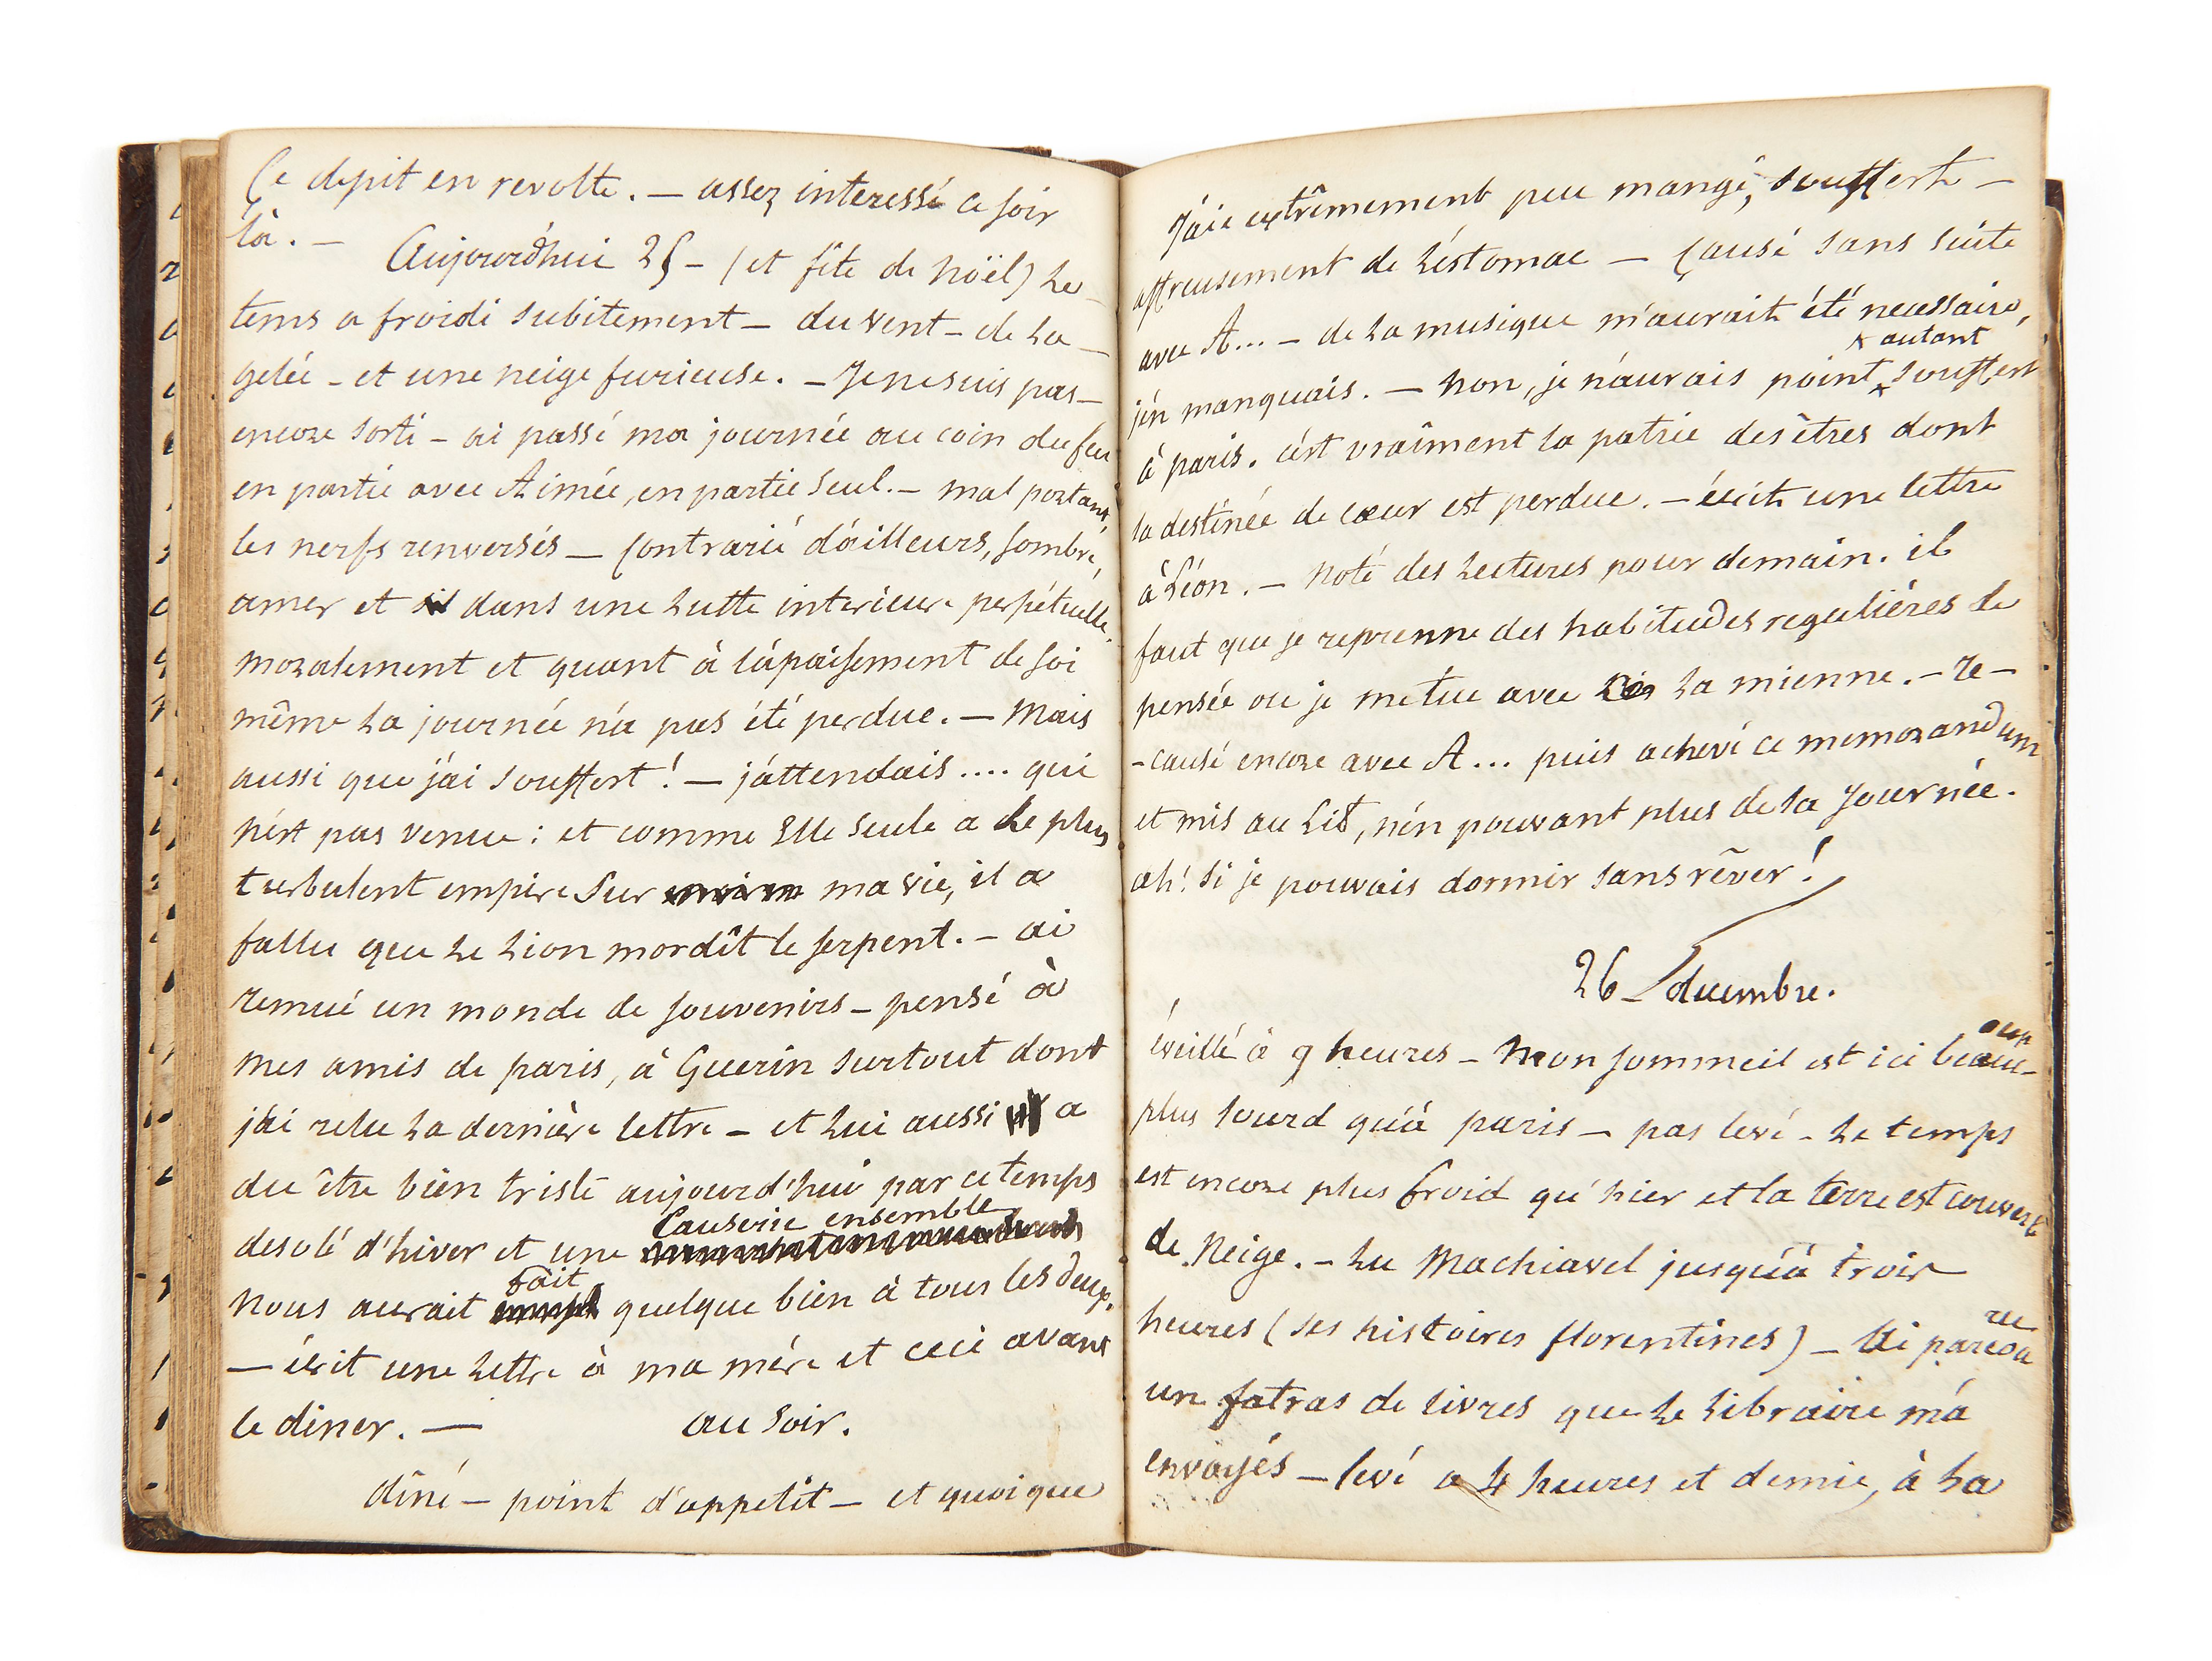 Ce depit en revolte. — assez interessé ce soir
là. —
Aujourd'hui 25 — (et fête de Noël) Le
tems a froidi subitement — du vent — de la —
gelée — et une neige furieuse. — Je ne suis pas —
encore sorti — ai passé ma journée au coin du feu
en partie avec Aimée, en partie seul. — mal portant,
les nerfs renversés — contrarié d'ailleurs, sombre,
amer et dans une lutte interieure perpétuelle.
moralement et quant à l'apaisement de soi
même la journée n'a pas été perdue. — Mais
aussi que j'ai souffert! — j'attendais .... qui
n'est pas venue : et comme Elle seule a le plus
turbulent empire sur ma vie, il a
fallu que le Lion mordît le serpent. — ai
remué un monde de souvenirs — pensé à
mes amis de paris, à Guerin surtout dont
j'ai relu la dernière lettre — et lui aussi a
du être bien triste aujourd'hui par ce temps
Causerie ensemble
desolé d'hiver et une
fait
nous aurait quelque bien à tous les deux.
— écrit une lettre à ma mère et ceci avant
le diner. — au soir.
dîné — point d'appetit — et quoique
J'aie extrêmement peu mangé, souffert —
affreusement de l'estomac — Causé sans suite
avec A... — de la musique m'aurait été necessaire,
x autant
j'en manquais. — Non, je n'aurais point x souffert
à paris. c'est vraîment la patrie des êtres dont
la destinée de cœur est perdue. — écrit une lettre
à Léon. — Noté des lectures pour demain. il
faut que je reprenne des habitudes regulières de
pensée ou je me tue avec la mienne. — Re —
- causé encore avec A... puis achevé ce memorandum
et mis au Lit, n'en pouvant plus de la Journée.
ah! si je pouvais dormir sans rêver!
26 — decembre.
oup
éveillé à 9 heures — Mon sommeil est ici beauc-
plus lourd qu'à paris — pas levé — Le temps
est encore plus froid qu'hier et la terre est couverte
de Neige. — Lu Machiavel jusqu'à trois
ru
heures (ses histoires florentines) — ai parco
un fatras de livres que le libraire m'a
envoyés — levé a 4 heures et demie, à la